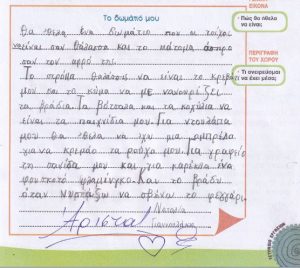 Το δωμάτιό μου
Θα ήθελα ένα δωμάτιο που οι τοίχοι
να είναι σαν θάλασσα και το πάτωμα άσπρο
σαν τον αφρό της.
Το στρώμα θαλάσσης να είναι το κρεβάτι
μου και το κύμα να με νανουρίζει
τα βράδια. Τα βότσαλα και τα κοχύλια να
είναι τα παιχνίδια μου. Για ντουλάπα
μου θα ήθελα να έχω μια ομπρέλα
για να κρεμάο τα ρούχα μου. Για γραφείο
τη σανίδα μου και για καρέκλα ένα
φουσκωτό φλαμίνγκο. Και το βράδυ
όταν νυστάξω να σβήνω το φεγγάρι
Άριστα!
Ναταλία
ΕΙΚΟΝΑ
Πώς θα ήθελα
να είναι;
ΠΕΡΙΓΡΑΦΗ
ΤΟΥ ΧΩΡΟΥ
Τι ονειρεύομαι
να έχει μέσα;